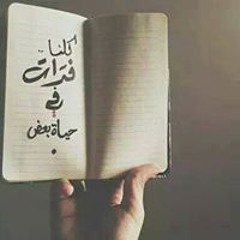 كلنا
فترات
في
حياة بعض
.